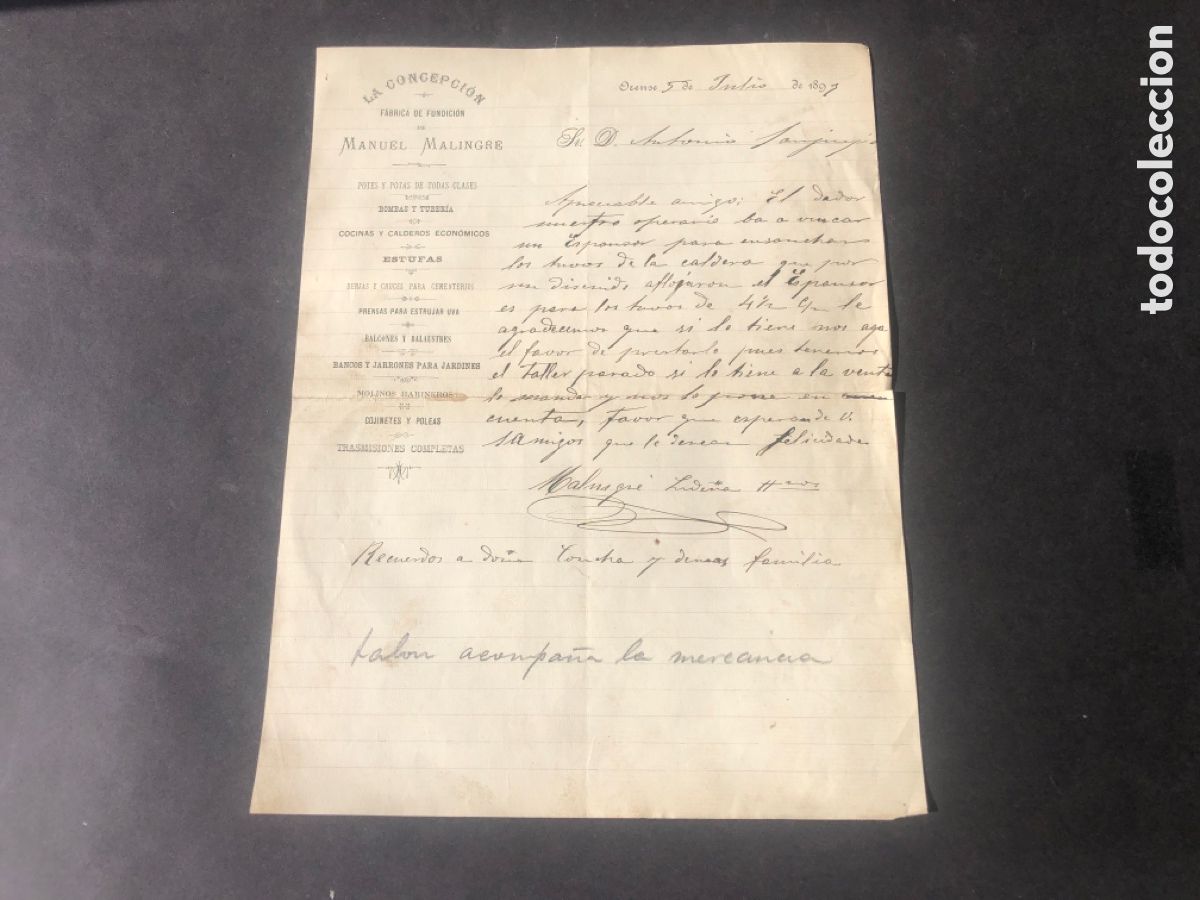 LA CONCEPCIÓN
FÁBRICA DE FUNDICIÓN
DE
MANUEL MALINGRE
POTES Y POTAS DE TODAS CLASES
BOMBAS Y TUBERÍA
COCINAS Y CALDEROS ECONÓMICOS
ESTUFAS
VERJAS Y CRUCES PARA CEMENTERIOS
PRENSAS PARA ESTRUJAR UVA
BALCONES Y BALAUSTRES
BANCOS Y JARRONES PARA JARDINES
MOLINOS HARINEROS
COJINETES Y POLEAS
TRASMISIONES COMPLETAS
Orense 5 de Julio de 1897
Sr. D. Antonio
Apreciable amigo: El dador
nuestro operario ba a
un Espansor para ensanchar
los tuvos de la caldera que por
un aflojaron el Espansor
es para los tuvos de 4½ c/m le
agradecemos que si lo tiene nos aga
el favor de prestarlo pues tenemos
el Taller parado si lo tiene a la venta
lo manda y nos lo pone en
cuenta, favor que esperan de V.
s amigos que le desean felicidade
Malingre Ludeña Hnos
Recuerdos a doña Concha y demas familia
talon acompaña la mercancia
todocoleccion